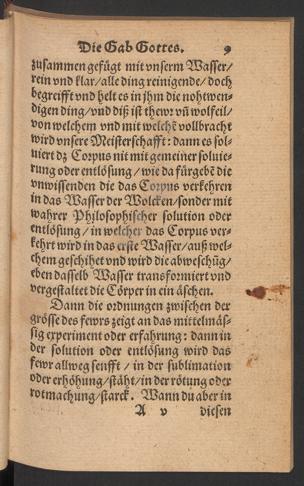 Die Gab Gottes. 9
zusammen gefügt mit vnserm Wasser/
rein vnd klar/ alle ding reinigende/ doch
begreifft vnd helt es in jhm die nohtwen-
digen ding/ vnd diß ist thewr vñ wolfeil/
von welchem vnd mit welchẽ vollbracht
wird vnsere Meisterschafft: dann es sol-
uiert dz Corpus nit mit gemeiner soluie-
rung oder entlösung / wie da fürgebẽ die
vnwissenden die das Corpus verkehren
in das Wasser der Wolcken/ sonder mit
wahrer Philosophischer solution oder
entlösung/ in welcher das Corpus ver-
kehrt wird in das erste Wasser/ auß wel-
chem geschihet vnd wird die
eben dasselb Wasser transformiert vnd
vergestaltet die Cörper in ein äschen.
Dann die ordnungen zwischen der
grösse des fewrs zeigt an das mittelmäs-
sig experiment oder erfahrung: dann in
der solution oder entlösung wird das
fewr allweg senfft / in der sublimation
oder erhöhung/ stäht/ in der rötung oder
rotmachung/ starck. Wann du aber in
A v diesen